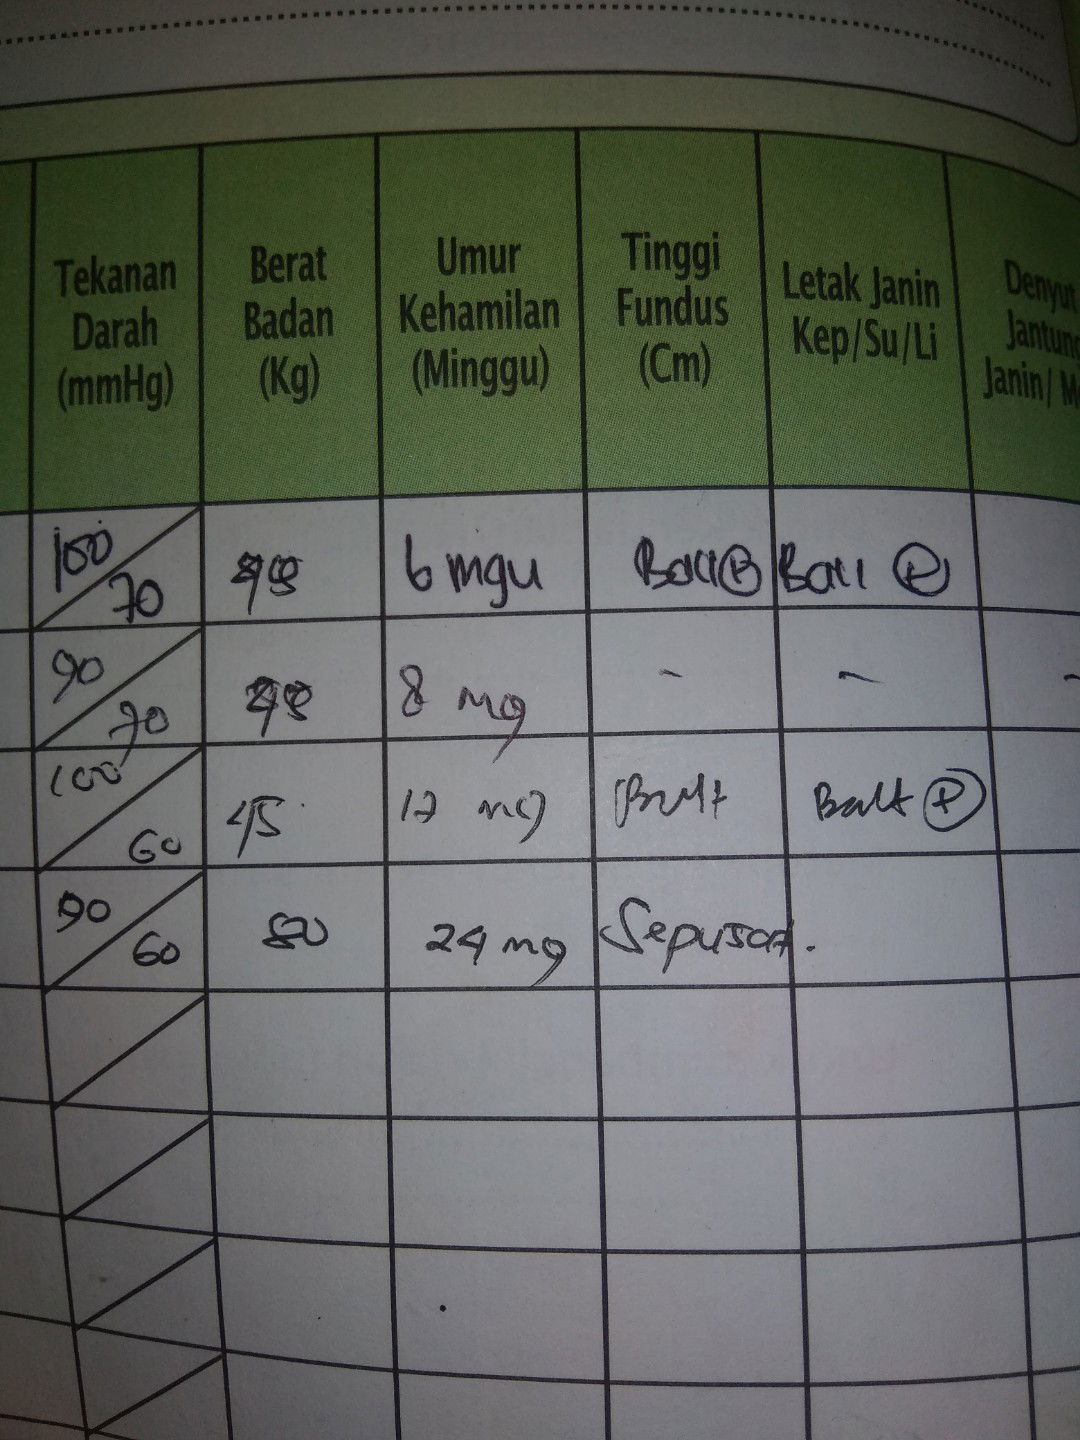 Tekanan Darah (mmHg)
Berat Badan (Kg)
Umur Kehamilan (Minggu)
Tinggi Fundus (Cm)
Letak Janin Kep/Su/Li
Denyut Jantung Janin/
100/70 6 mgu
90/70 8 mg - - -
100/60 45 12 mg Balt Balt (+)
90/60 50 24 mg Sepusat.